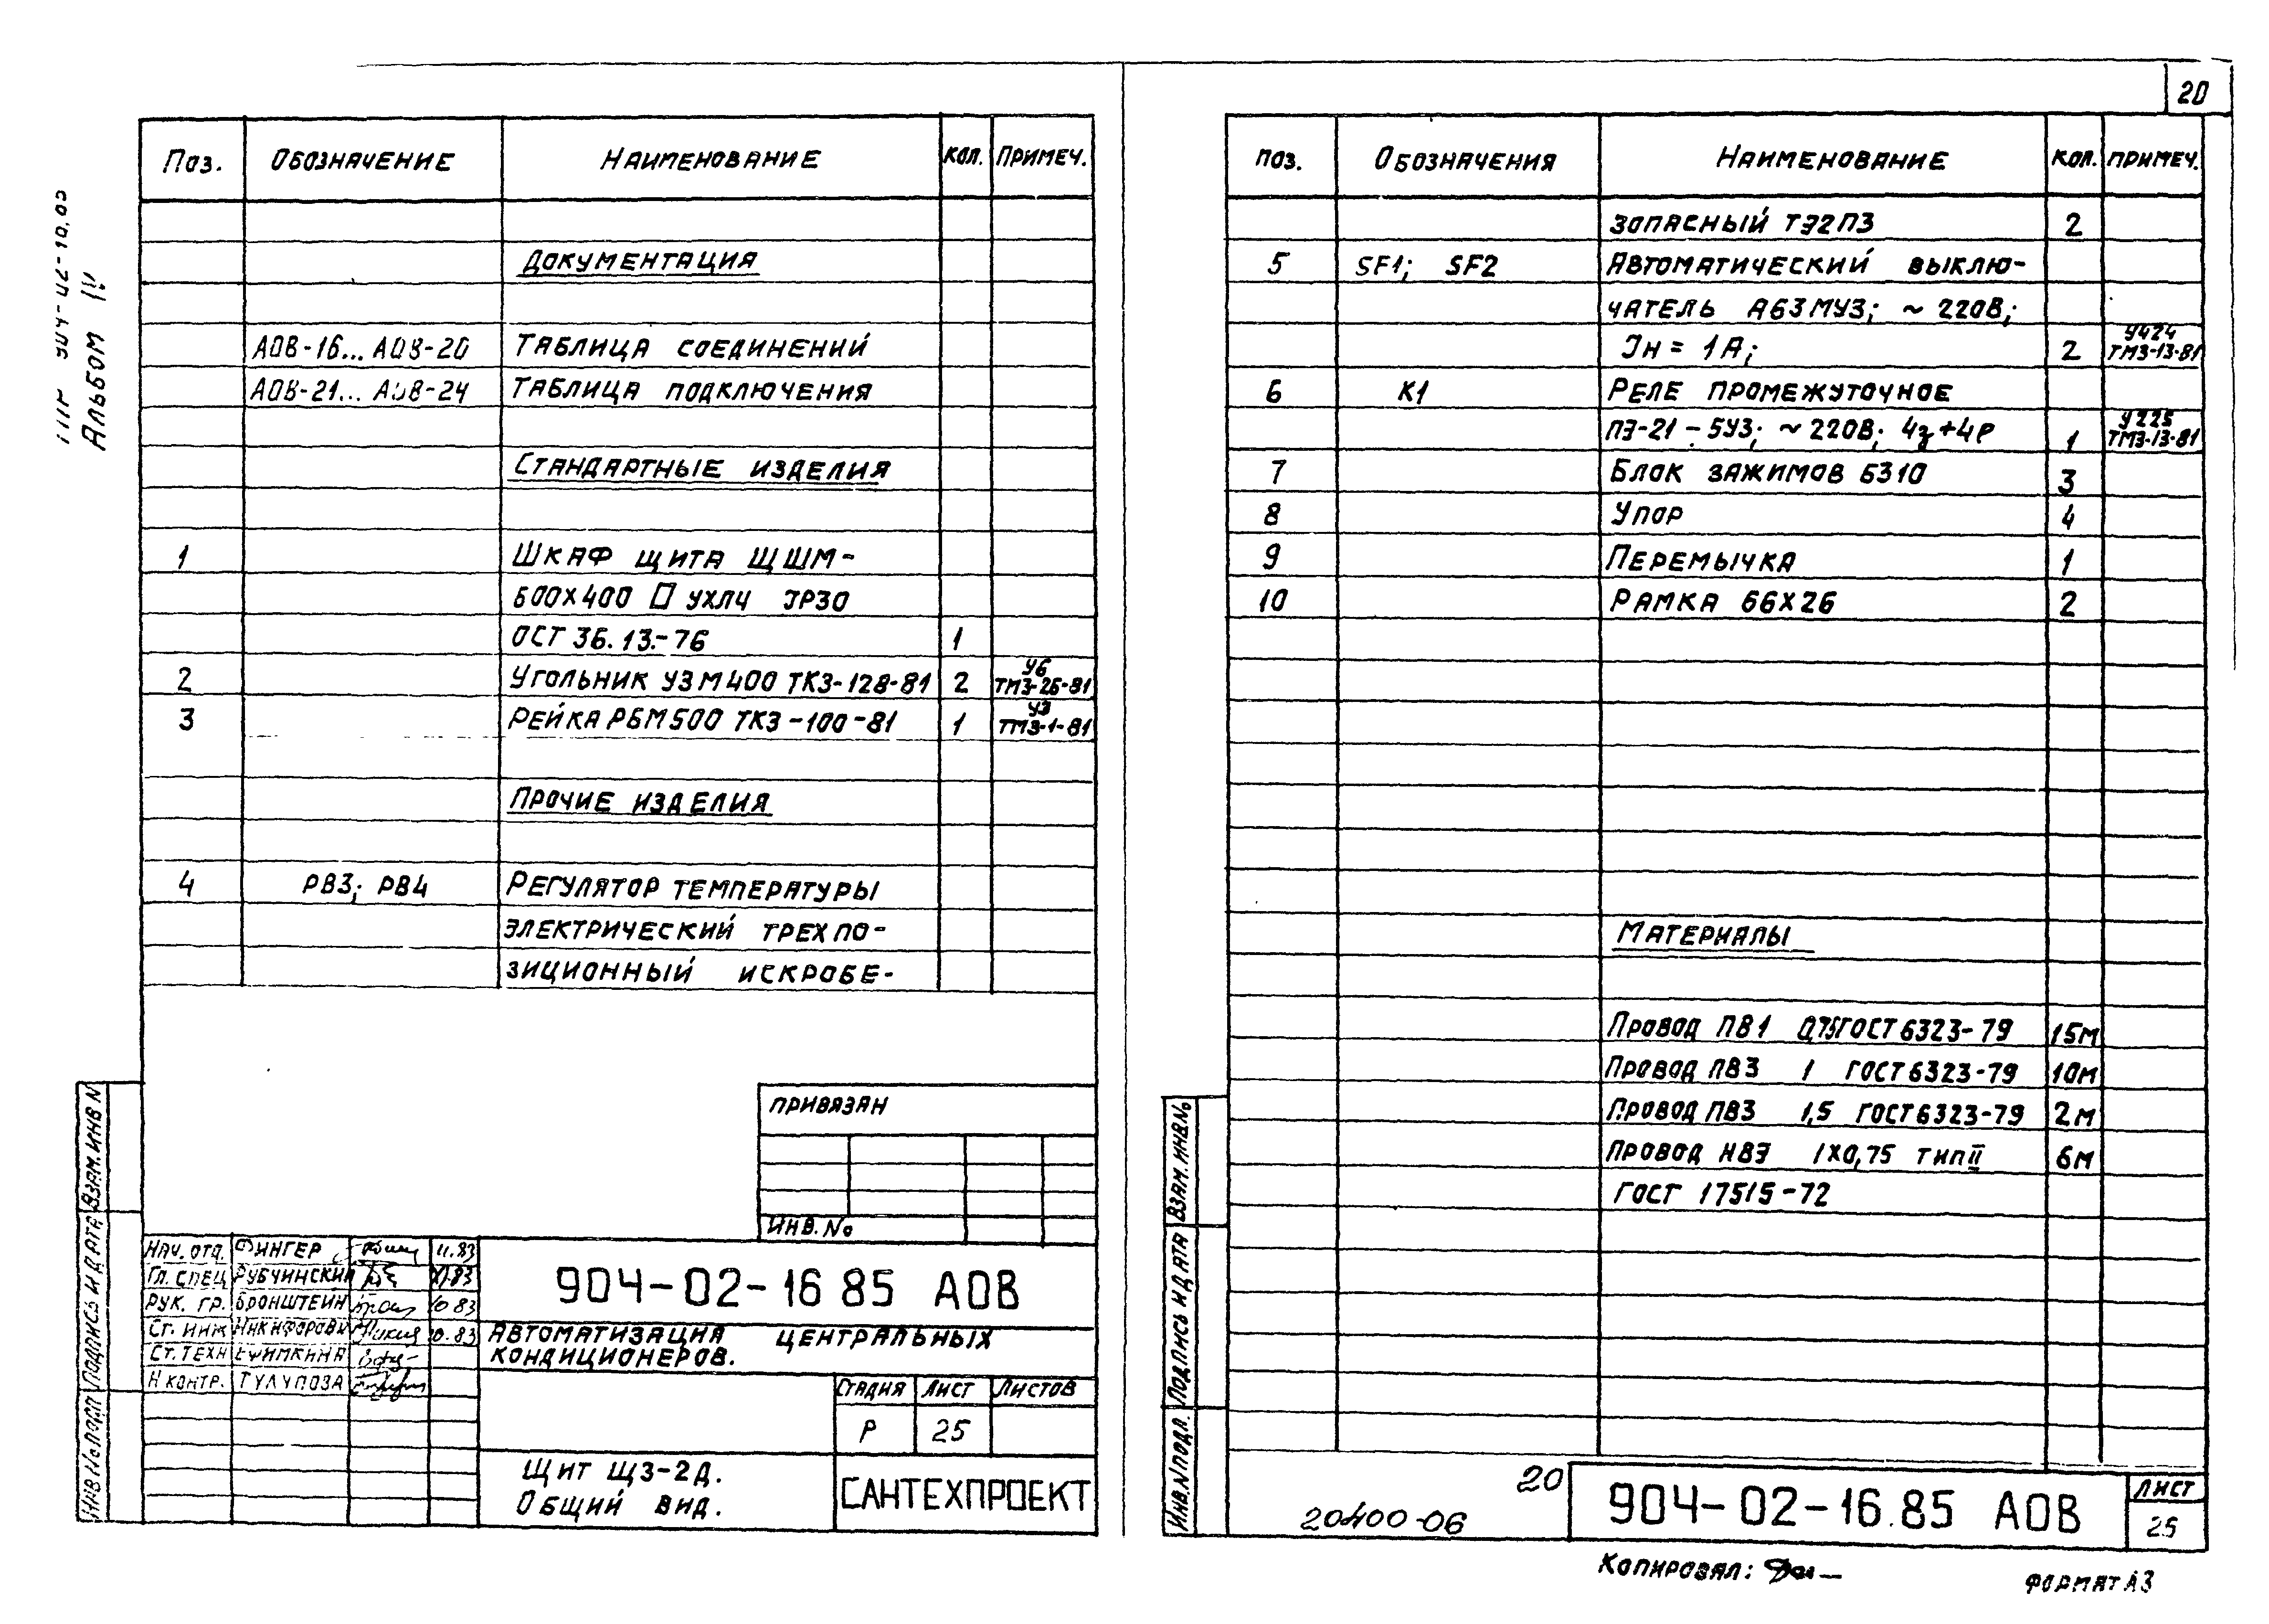 20
Альбом IV
Поз. Обозначение Наименование Кол. Примеч.
Документация
АОВ-16... АОВ-20 Таблица соединений
АОВ-21... АОВ-24 Таблица подключения
Стандартные изделия
1 Шкаф щита ЩШМ-
600х400 □ УХЛ4 IP30
ОСТ 36.13.-76 1
2 Угольник УЗМ400 ТКЗ-128-81 2 У6 ТМ3-26-81
3 Рейка РБМ500 ТКЗ-100-81 1 У3 ТМ3-1-81
Прочие изделия
4 РВ3; РВ4 Регулятор температуры
электрический трехпо-
зиционный искробе-
Привязан
Инв. №
Нач. отд. Фингер 11.83
Гл. спец Рубчинский XI.83
Рук. гр. Бронштейн 10 83
Ст. инж Никифорови 10.83
Ст. техн Ефимкина
Н контр.
904-02-16 85 АОВ
Автоматизация центральных
кондиционеров.
Стадия Лист Листов
Р 25
Щит Щ3-2Д.
Общий вид.
САНТЕХПРОЕКТ
Взам. инв N
Подпись и дата
Инв № подл
Поз. Обозначения Наименование Кол. Примеч.
запасный ТЭ2П3 2
5 SF1; SF2 Автоматический выклю-
чатель А63МУ3; ~ 220В;
Iн = 1А; 2 У424 ТМ3-13-81
6 К1 Реле промежуточное
ПЭ-21-5У3; ~220В; 4з+4р 1 У225 ТМ3-13-81
7 Блок зажимов Б310 3
8 Упор 4
9 Перемычка 1
10 Рамка 66х26 2
Материалы
Провод ПВ1 0,75 ГОСТ 6323-79 15м
Провод ПВ3 1 ГОСТ 6323-79 10м
Провод ПВ3 1,5 ГОСТ 6323-79 2м
Провод НВЭ 1х0,75 тип II 6м
ГОСТ 17515-72
Взам. инв. №
Подпись и дата
Инв. N подл.
20
20400-06
904-02-16.85 АОВ
Лист
25
Копировал:
Формат А3